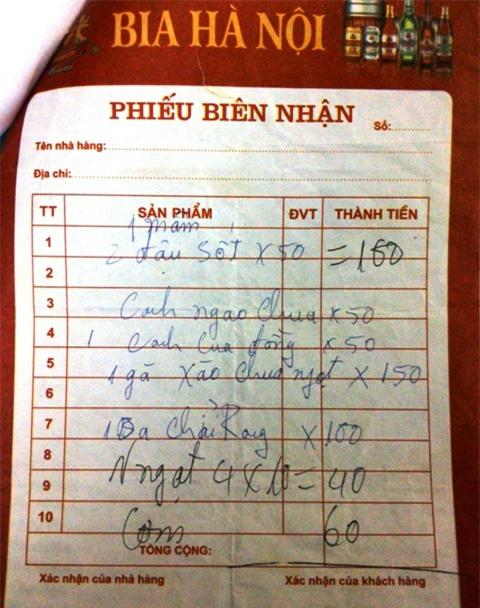 BIA HÀ NỘI
PHIẾU BIÊN NHẬN
Số:
Tên nhà hàng:
Địa chỉ:
TT SẢN PHẨM ĐVT THÀNH TIỀN
1
2 đậu sốt x 50 =
2
3 Canh ngao chua x 50
4 1 Canh cua đồng x 50
5 1 gà xào chua ngọt x 150
6
7 1 x 100
8 N ngọt 4 x 10 = 40
9
10 Cơm 60
TỔNG CỘNG:
Xác nhận của nhà hàng Xác nhận của khách hàng